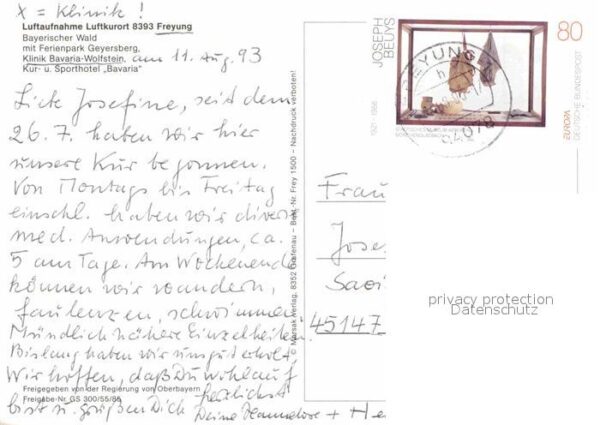 x = Klinik !
Luftaufnahme Luftkurort 8393 Freyung
Bayerischer Wald
mit Ferienpark Geyersberg,
Klinik Bavaria-Wolfstein, am 11. Aug. 93
Kur- u. Sporthotel „Bavaria"
Liebe Josefine, seit dem
26.7. haben wir hier
unsere Kur begonnen.
Von Montags bis Freitag
einschl. haben wir divers
med. Anwendungen, ca.
5 am Tage. Am Wochenende
können wir wandern,
faulenzen, schwimmen
Mündlich nähere Einzelheiten.
Bislang haben wir uns gut erholt.
Wir hoffen, daß Du wohlauf
bist u. grüßen Dich herzlichst
Deine Hannelore + He
Freigegeben von der Regierung von Oberbayern
Freigabe-Nr. GS 300/55/86
© Morsak Verlag, 8352 Grafenau – Best.-Nr. Frey 1500 – Nachdruck verboten!
JOSEPH
BEUYS
1921-1986
80
EUROPA
DEUTSCHE BUNDESPOST
FREYUNG
94078
Frau
Jose
45147
privacy protection
Datenschutz